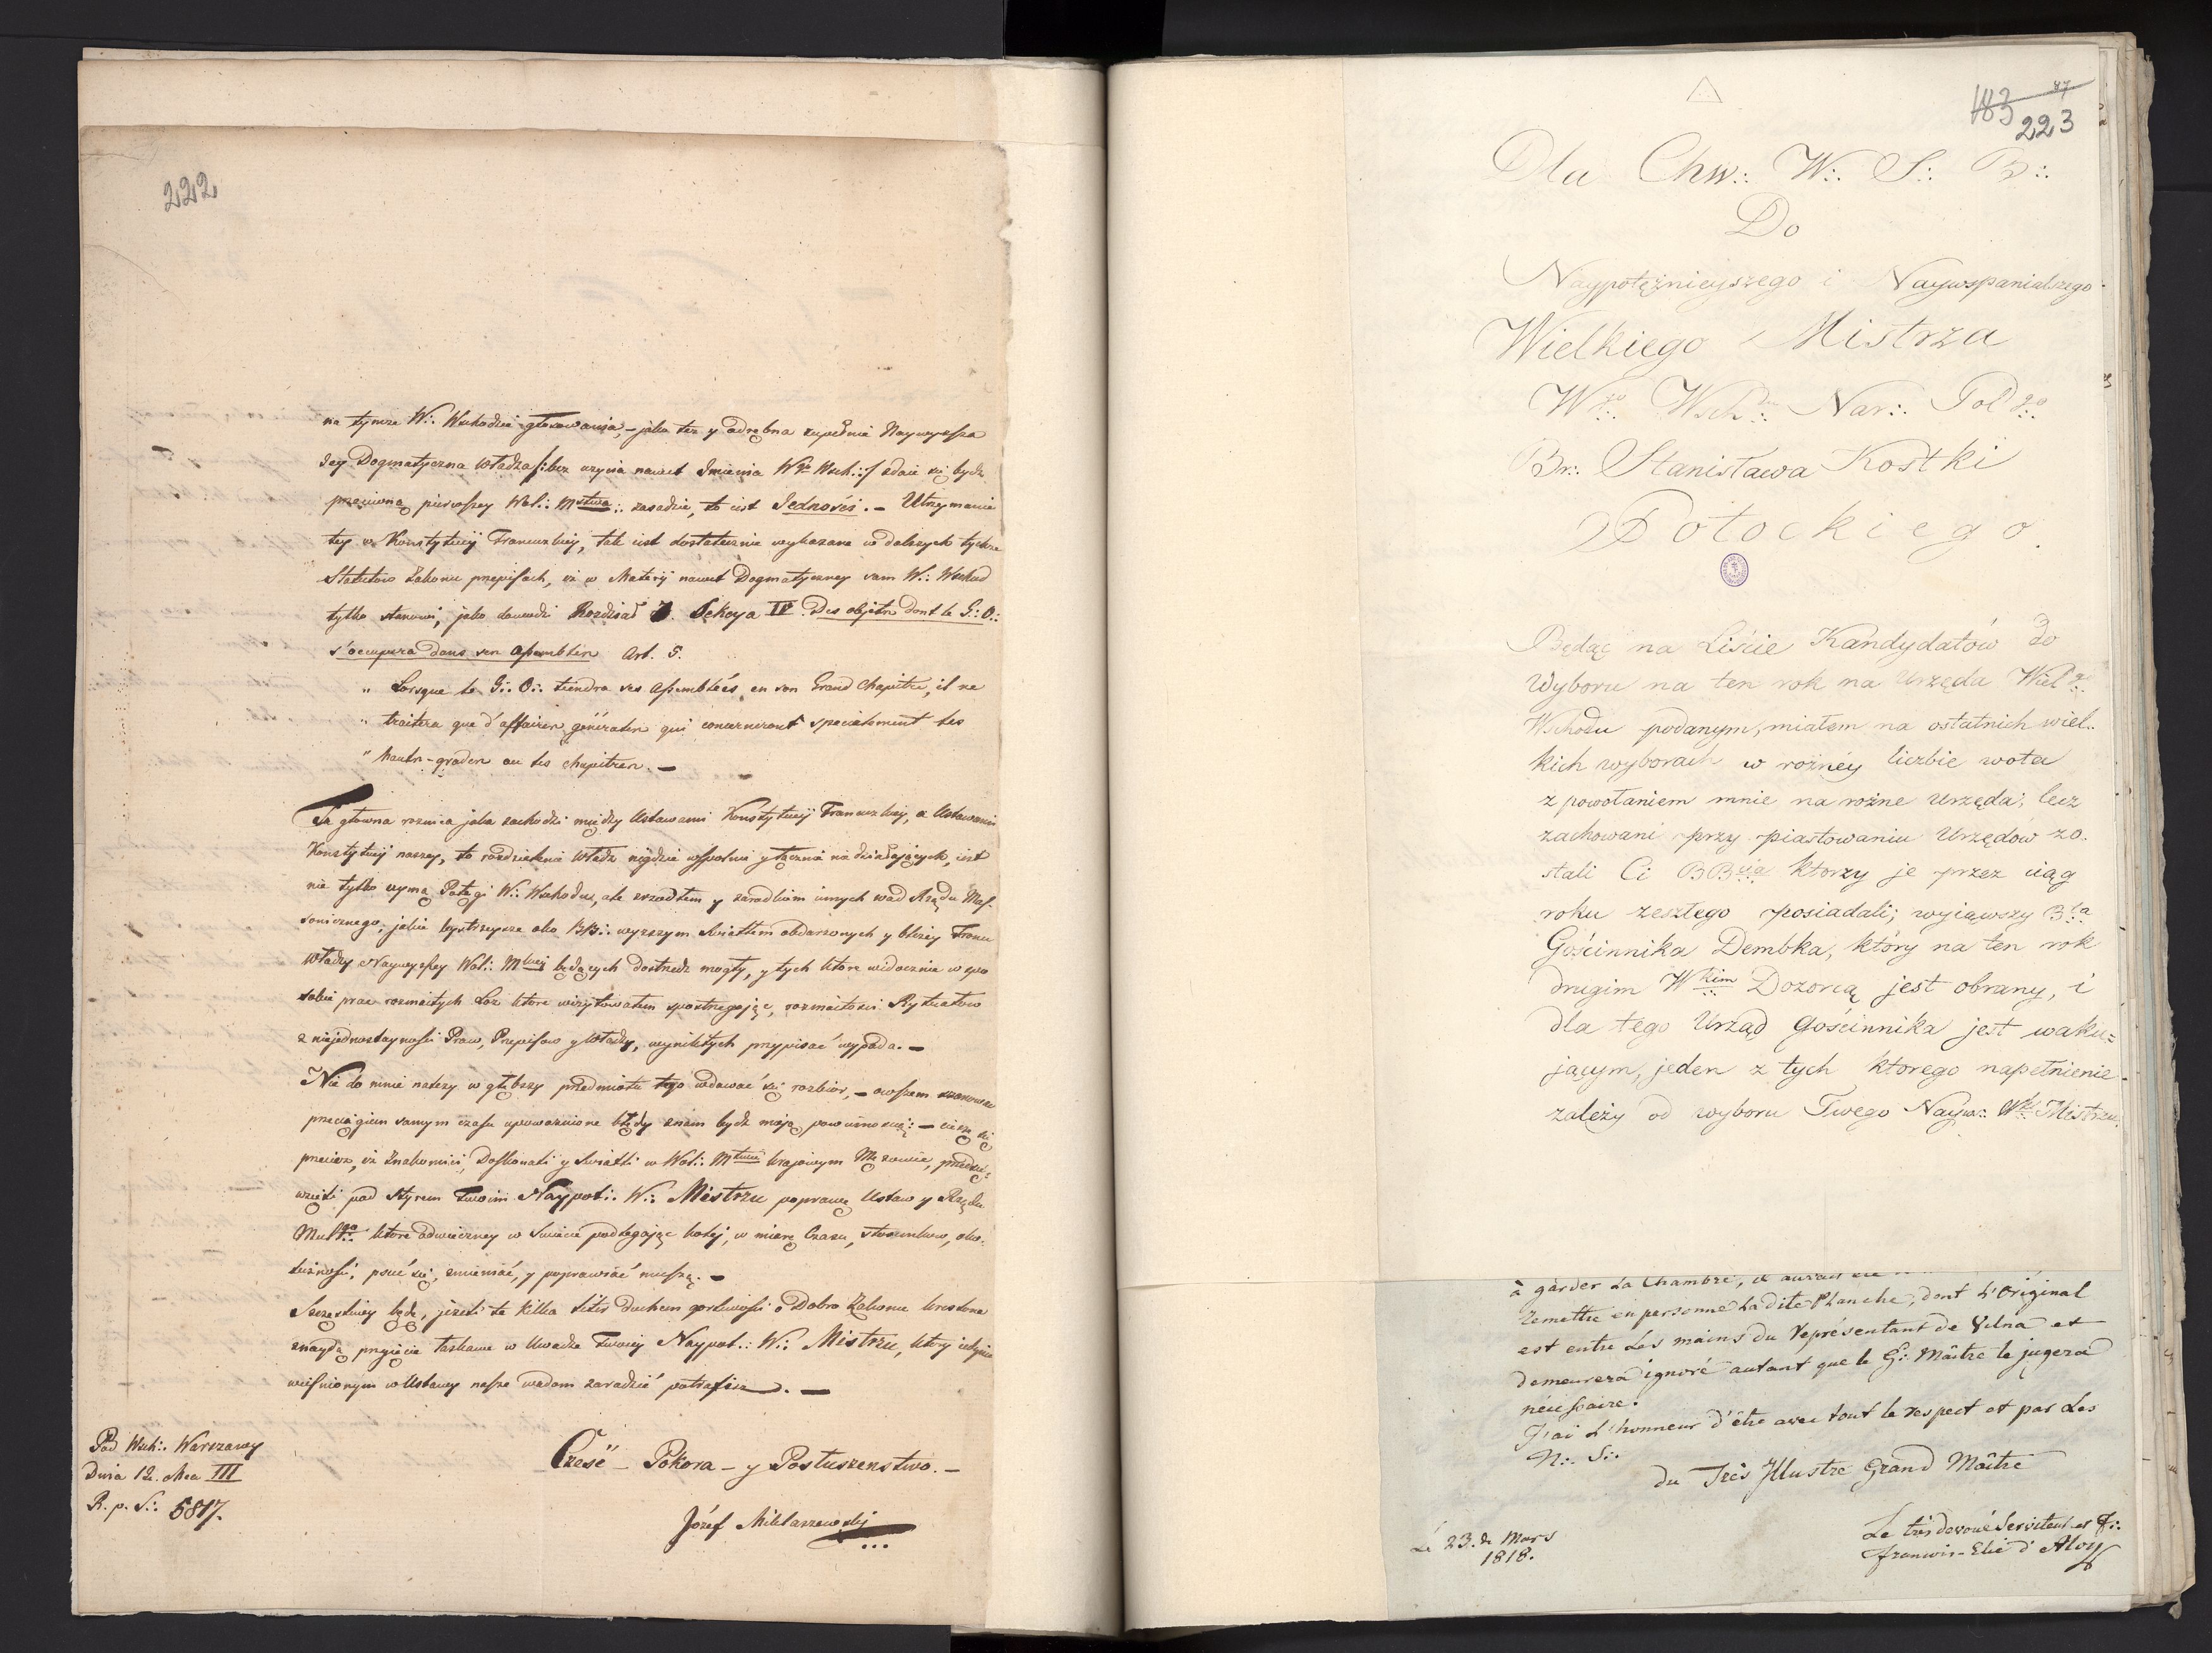 222
na tymże W∴ Wschodzie głosowania, – jako też y odrębna zupełnie Naywyższa
Jey Dogmatyczna władza /: bez użycia nawet Imienia Wgo Wsch∴ :/ zdaie się bydź
przeciwną pierwszey Wol∴ Mstwa∴ zasadzie, to iest Jedności. – Utrzymanie
tey w Konstytucyi Francuzkiey, tak iest dostatecznie wykazane w dalszych tychże
Statutów Zakonu przepisach, iż w Materyi nawet Dogmatyczney sam W∴ Wschod
tylko stanowi, jako dowodzi Rozdział 3. Sekcya IV. Des objets dont le G∴ O∴
s'occupera dans ses assemblées Art. 5.
" Lorsque le G∴ O∴ tiendra ses assemblées en son Grand Chapitre, il ne
" traitera que d'affaires générales qui concerneront specialement les
" hauts-grades ou les chapitres. –
Ta głowna rożnica jaka zachodzi między Ustawami Konstytucyi Francuzkiey, a Ustawami
Konstytucyi naszey, to rozdzielenie Władz nigdzie wspolnie y łącznie nie działających, iest
nie tylko uymą Potęgi W∴ Wschodu, ale źrzodłem y zarodkiem innych wad Rządu Mas-
sonicznego, jakie bystrzeysze oko BB∴ wyższym światłem obdarzonych y bliżey Tronu
Władzy Naywyższey Wol∴ Mskiey będących dostrzedz mogły, y tych które widocznie w spo
sobie prac rozmaitych Loż które wizytowałem spostrzegając, rozmaitości Rytuałow
z niejednostayności Praw, Przepisow y Władzy, wynikłych przypisać wypada. –
Nie do mnie należy w głębszy przedmiotu tego wdawać się rozbior, – owszem szanowane
przeciągiem samym czasu upoważnione błędy znam bydź moją powinnością; – cieszę się
przecież, iż Znakomici, Doskonali y Światli w Wol∴ Mstwie krajowym Mężowie, przedsię
wzięli pod Styrem Twoim Naypot∴ W∴ Mistrzu poprawę Ustaw y Rządu
Mulgo∴ które odwieczney w Świecie podlegając kolej, w miarę Czasu, stosunkow, oko-
liczności, psuć się, zmieniać, y poprawiać muszą. –
Szczęśliwy będę, jeżeli te kilka liter duchem gorliwości o Dobro Zakonu kreslone
znaydą przyięcie łaskawe w Uwadze Twoiey Naypot∴ W∴ Mistrzu, który iedynie
wciśnionym w Ustawy nasze wadom zaradzić potrafisz. –
Pod Wsch∴ Warszawy
Dnia 12. Mca III
R. p. S∴ 5817.
Cześć – Pokora – y Posłuszenstwo. –
Józef Mikłaszewski
183 87
223
Dla Chw∴ W∴ S∴ B∴
Do
Naypotężnieyszego i Naywspanialszego
Wielkiego Mistrza
Wgo∴ Wschu∴ Nar∴ Polgo∴
Br∴ Stanisława Kostki
Potockiego.
Będąc na Liście Kandydatów do
Wyboru na ten rok na Urzęda Wielgo∴
Wschodu podanym, miałem na ostatnich wiel-
kich wyborach w rożney liczbie wota
z powołaniem mnie na rożne Urzęda; lecz
zachowani przy piastowaniu Urzędów zo-
stali Ci BBcia∴ ktorzy je przez ciąg
roku zeszłego posiadali; wyiąwszy Bta∴
Gościnnika Dembka, który na ten rok
drugim Wkim∴ Dozorcą jest obrany, i
dla tego Urząd Gościnnika jest waku=
jącym, jeden z tych ktorego napełnienie
zależy od wyboru Twego Nayw∴ Wki∴ Mistrzu.
à garder la Chambre,
remettre en personne la dite Planche, dont l'Original
est entre les mains du Représentant de Vilna et
demeurera ignoré autant que le G∴ Maître le jugera
nécessaire.
J'ai l'honneur d'être avec tout le respect et par les
N∴ S∴
du Très Illustre Grand Maître
Le 23. de Mars
1818.
Le très devoué Serviteur et F∴
françois-Elie d'Aloy